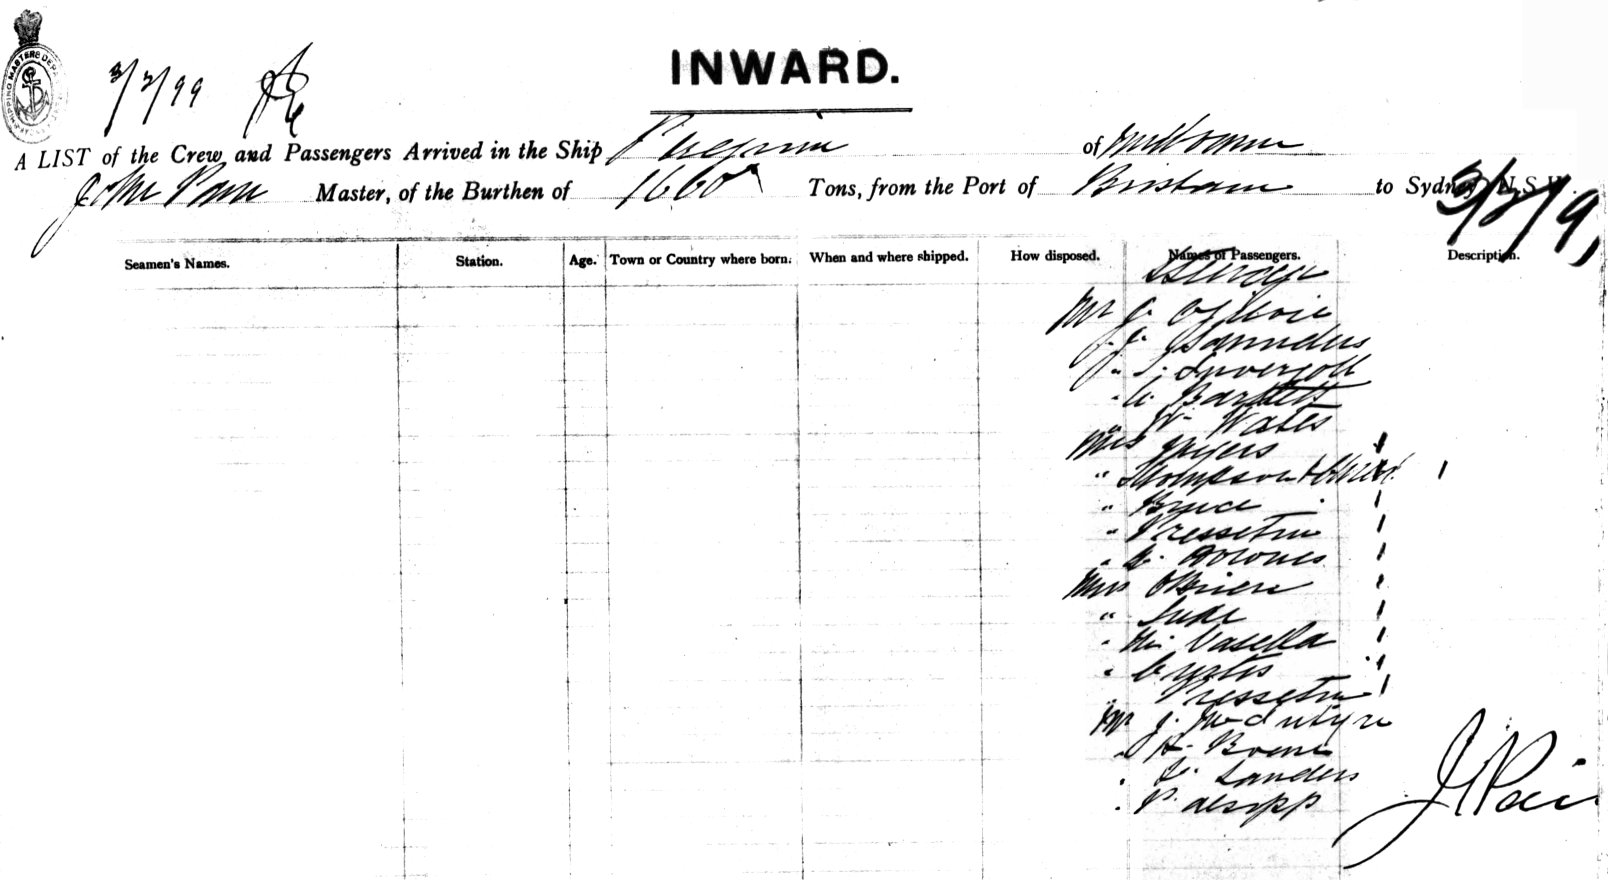 SHIPPING MASTERS DEPA
3/2/99
INWARD.
A LIST of the Crew and Passengers Arrived in the Ship Peregrine of Melbourne
Master, of the Burthen of 1660 Tons, from the Port of Brisbane to Sydney N.S.W.
3/2/9
Seamen's Names. Station. Age. Town or Country where born. When and where shipped. How disposed. Names of Passengers. Description.
Steerage
Mr J. Ogilvie
" J. Saunders
" Inversoll
" Bartlett
" W. Wates
Mrs Myers
" Thompson & Child
" Bryce
" Pressetin
" Holmes
Miss O'Brien
" Jude
" Vasella
" Curtis
" Pressetin
Mr J. McIntyre
" H. Bourne
" Sanders
" P. Aesopp